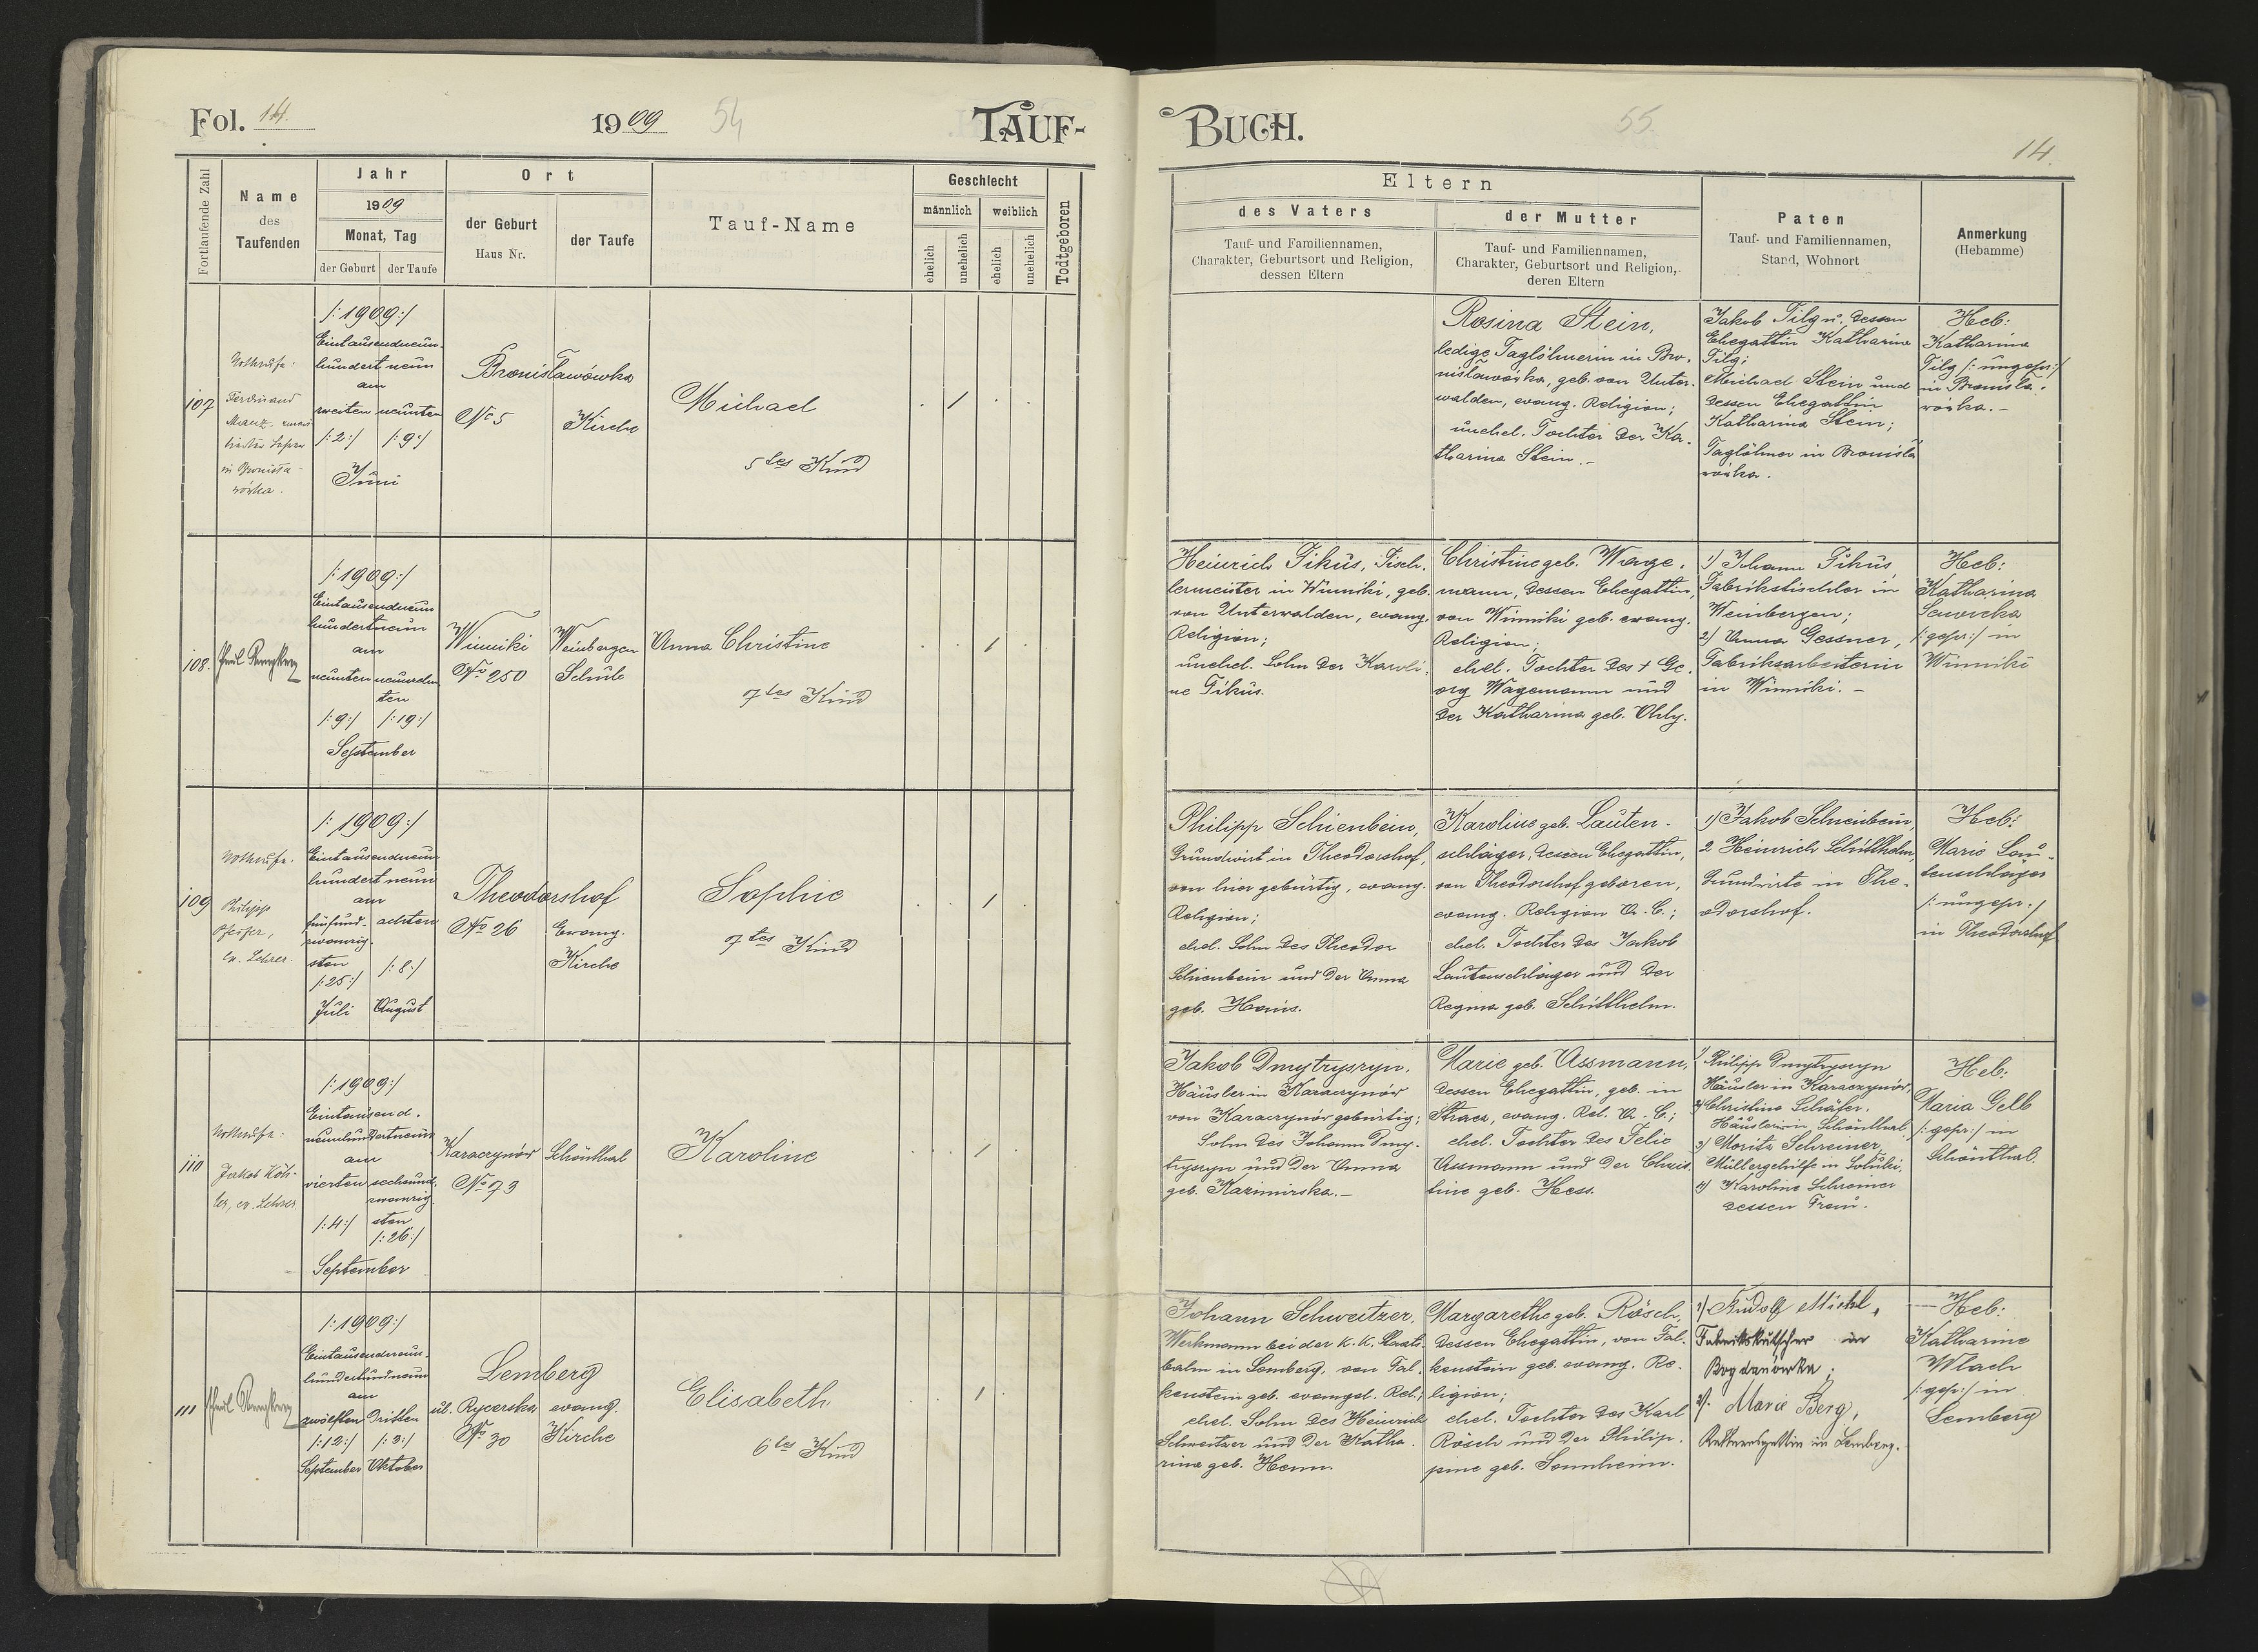 Fol. 14.
1909
54
TAUF-
BUCH.
55
14.
Fortlaufende Zahl
Name
des
Taufenden
Jahr
1909
Monat, Tag
der Geburt
der Taufe
Ort
der Geburt
Haus Nr.
der Taufe
Tauf-Name
Geschlecht
männlich
weiblich
ehelich
unehelich
ehelich
unehelich
Todtgeboren
Eltern
des Vaters
Tauf- und Familiennamen,
Charakter, Geburtsort und Religion,
dessen Eltern
der Mutter
Tauf- und Familiennamen,
Charakter, Geburtsort und Religion,
deren Eltern
Paten
Tauf- und Familiennamen,
Stand, Wohnort
Anmerkung
(Hebamme)
107
Nothtaufe:
Ferdinand
in Bronisła-
wówka.
/:1909:/
Eintausendneun-
hundert neun
am
zweiten neunten
/:2:/ /:9:/
Juni
Bronisławówka
No 5
Kirche
Michael
5tes Kind
Rosina Stein,
ledige Taglöhnerin in Bro-
nisławówka, geb. von Unter-
walden, evang. Religion;
unehel. Tochter der Ka-
tharina Stein.-
Jakob Filg u. dessen
Ehegattin Katharina
Filg;
Michael Stein und
dessen Ehegattin
Katharina Stein;
Taglöhner in Bronisła
wówka.
Heb:
Katharina
Filg /:ungepr:/
in Bronisła-
wówka.-
108.
/:1909:/
Eintausendneun
hundertneun
am
neunten neunzehn
ten
/:9:/ /:19:/
September
Winniki
No 250
Weinbergen
Schule
Anna Christine
7tes Kind
Heinrich Fikus, Tisch-
lermeister in Winniki, geb.
von Unterwalden, evang.
Religion;
unehel. Sohn der Karoli-
ne Fikus.
Christine geb. Wage-
mann, dessen Ehegattin,
von Winniki geb. evang.
Religion;
ehel. Tochter des + Ge-
org Wagemann und
der Katharina geb. Uhly.
1) Johann Fikus,
Fabrikstischler in
Weinbergen;
2) Anna Gessner,
Fabriksarbeiterin
in Winniki.-
Heb:
Katharina
/:gepr:/ in
Winniki
109
Nothtaufe.
Philipp
Pfeifer,
ev. Lehrer.
/:1909:/
Eintausendneun
hundert neun
am
fünfund- achten
zwanzig-
sten
/:25:/ /:8:/
Juli August
Theodorshof
No 26
Evang.
Kirche
Sophie
7tes Kind
Philipp Schienbein,
Grundwirt in Theodorshof,
von hier gebürtig, evang.
Religion;
ehel. Sohn des Theodor
Schienbein und der Anna
geb. Harris.
Karoline geb. Lauten-
schläger, dessen Ehegattin,
von Theodorshof geboren,
evang. Religion A. C.;
ehel. Tochter des Jakob
Lautenschläger und der
Regina geb. Schitthelm.
1) Jakob Schienbein,
2 Heinrich Schitthelm,
Grundwirte in The-
odorshof.
Heb:
Marie Lau-
tenschläger
/:ungepr:/
in Theodorshof
110
Nothtaufe:
Jakob Köh-
ler, ev. Lehrer.
/:1909:/
Eintausend-
neunhundertneun
am
vierten sechsund-
zwanzig
sten
/:4:/ /:26:/
September
Karaczynów
No 73
Schönthal
Karoline
Jakob Dmytryszyn,
Häusler in Karaczynów
von Karaczynów gebürtig;
Sohn des Johann Dmy-
tryszyn und der Anna
geb. Kazimirska.-
Marie geb. Assmann,
dessen Ehegattin, geb. in
Stracz, evang. Rel. A. C.;
ehel. Tochter des Felic
Assmann und der Chris-
tine geb. Hess.
1) Philipp Dmytryszyn
Häusler in Karaczynów,
2) Christine Schäfer,
Häuslerin in Schönthal
3) Moritz Schreiner,
Müllergehilfe in
4) Karoline Schreiner
dessen Frau.
Heb:
Maria Gelb
/:gepr:/ in
Schönthal.
111
/:1909:/
Eintausendneun-
hundertundneun
am
zwölften dritten
/:12:/ /:3:/
September Oktober
Lemberg
ul. Rycerska
No 30
evang.
Kirche
Elisabeth
6tes Kind
Johann Schweitzer,
Werkmann bei der k. k. Staats-
bahn in Lemberg, von Fal-
kenstein geb. evangel. Rel.;
ehel. Sohn des Heinrich
Schweitzer und der Katha-
rina geb. Henn.
Margarethe geb. Rösch,
dessen Ehegattin, von Fal-
kenstein geb. evang. Re-
ligion;
ehel. Tochter des Karl
Rösch und der Philip-
pine geb. Sonnheim.
1) Rudolf Michl,
Fabrikskutscher in
Bogdanówka;
2) Marie Berg,
in Lemberg.
Heb:
Katharine
Wlach
/:gepr:/ in
Lemberg